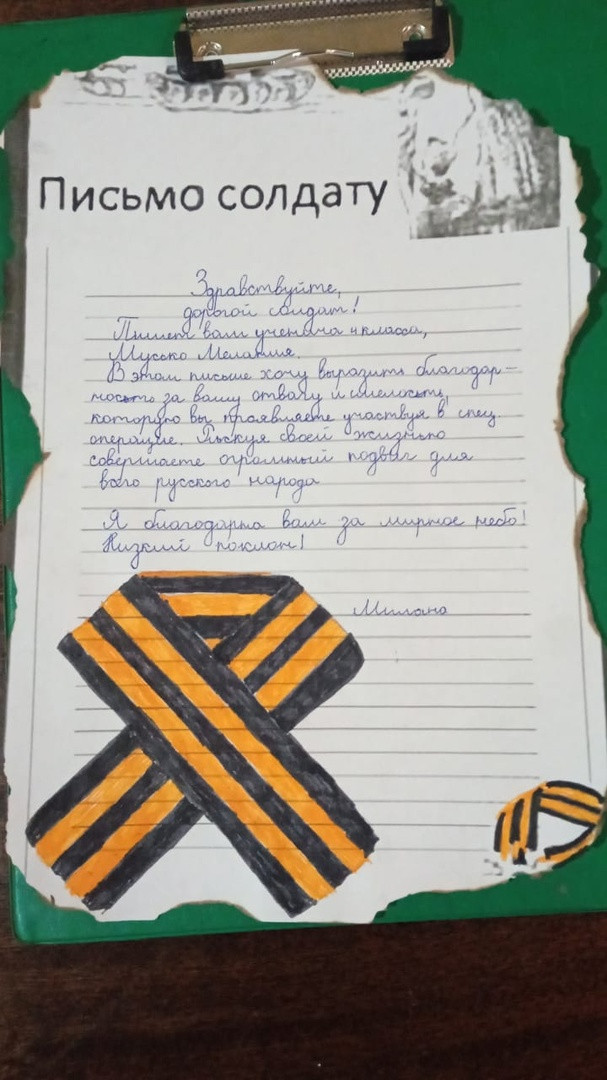 Письмо солдату
Здравствуйте,
дорогой солдат!
Пишет вам ученица 4 класса,
Мусько Мелания.
В этом письме хочу выразить благодар-
ность за вашу отвагу и смелость,
которую вы проявляете участвуя в спец.
операцие. Рискуя своей жизнью
совершаете огромный подвиг для
всего русского народа
Я благодарна вам за мирное небо!
Низкий поклон!
Милана